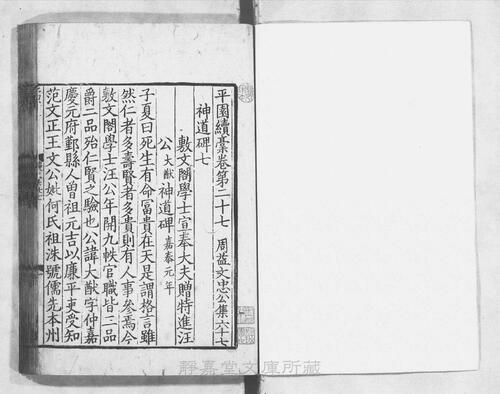 平園續藁卷第二十七 周益文忠公集六十七
神道碑七
敷文閣學士宣奉大夫贈特進汪
公大猷神道碑 嘉泰元年
子夏曰死生有命冨貴在天是謂格言雖
然仁者多壽賢者多貴則有人事參焉今
敷文閣學士汪公年開九帙官職皆二品
爵二品殆仁賢之驗也公諱大猷字仲嘉
慶元府鄞縣人曾祖元吉以廉平吏受知
范文正王文公妣何氏祖洙號儒先本州
靜嘉堂文庫所藏